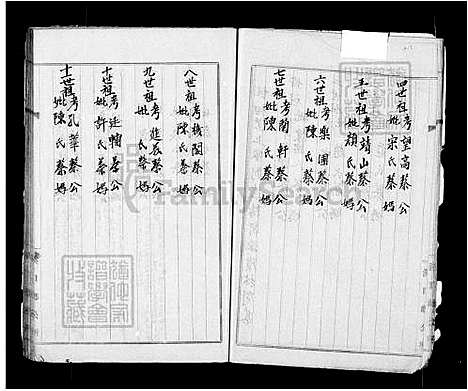 四世祖考望高蔡公
妣宋氏蔡媽
五世祖考靖山蔡公
妣顏氏蔡媽
六世祖考樂圃蔡公
妣陳氏蔡媽
七世祖考蘭軒蔡公
妣陳氏蔡媽
八世祖考機閣蔡公
妣陳氏蔡媽
九世祖考進辰蔡公
妣氏蔡媽
十世祖考廷蔡公
妣許氏蔡媽
十一世祖考孔華蔡公
妣陳氏蔡媽
FamilySearch